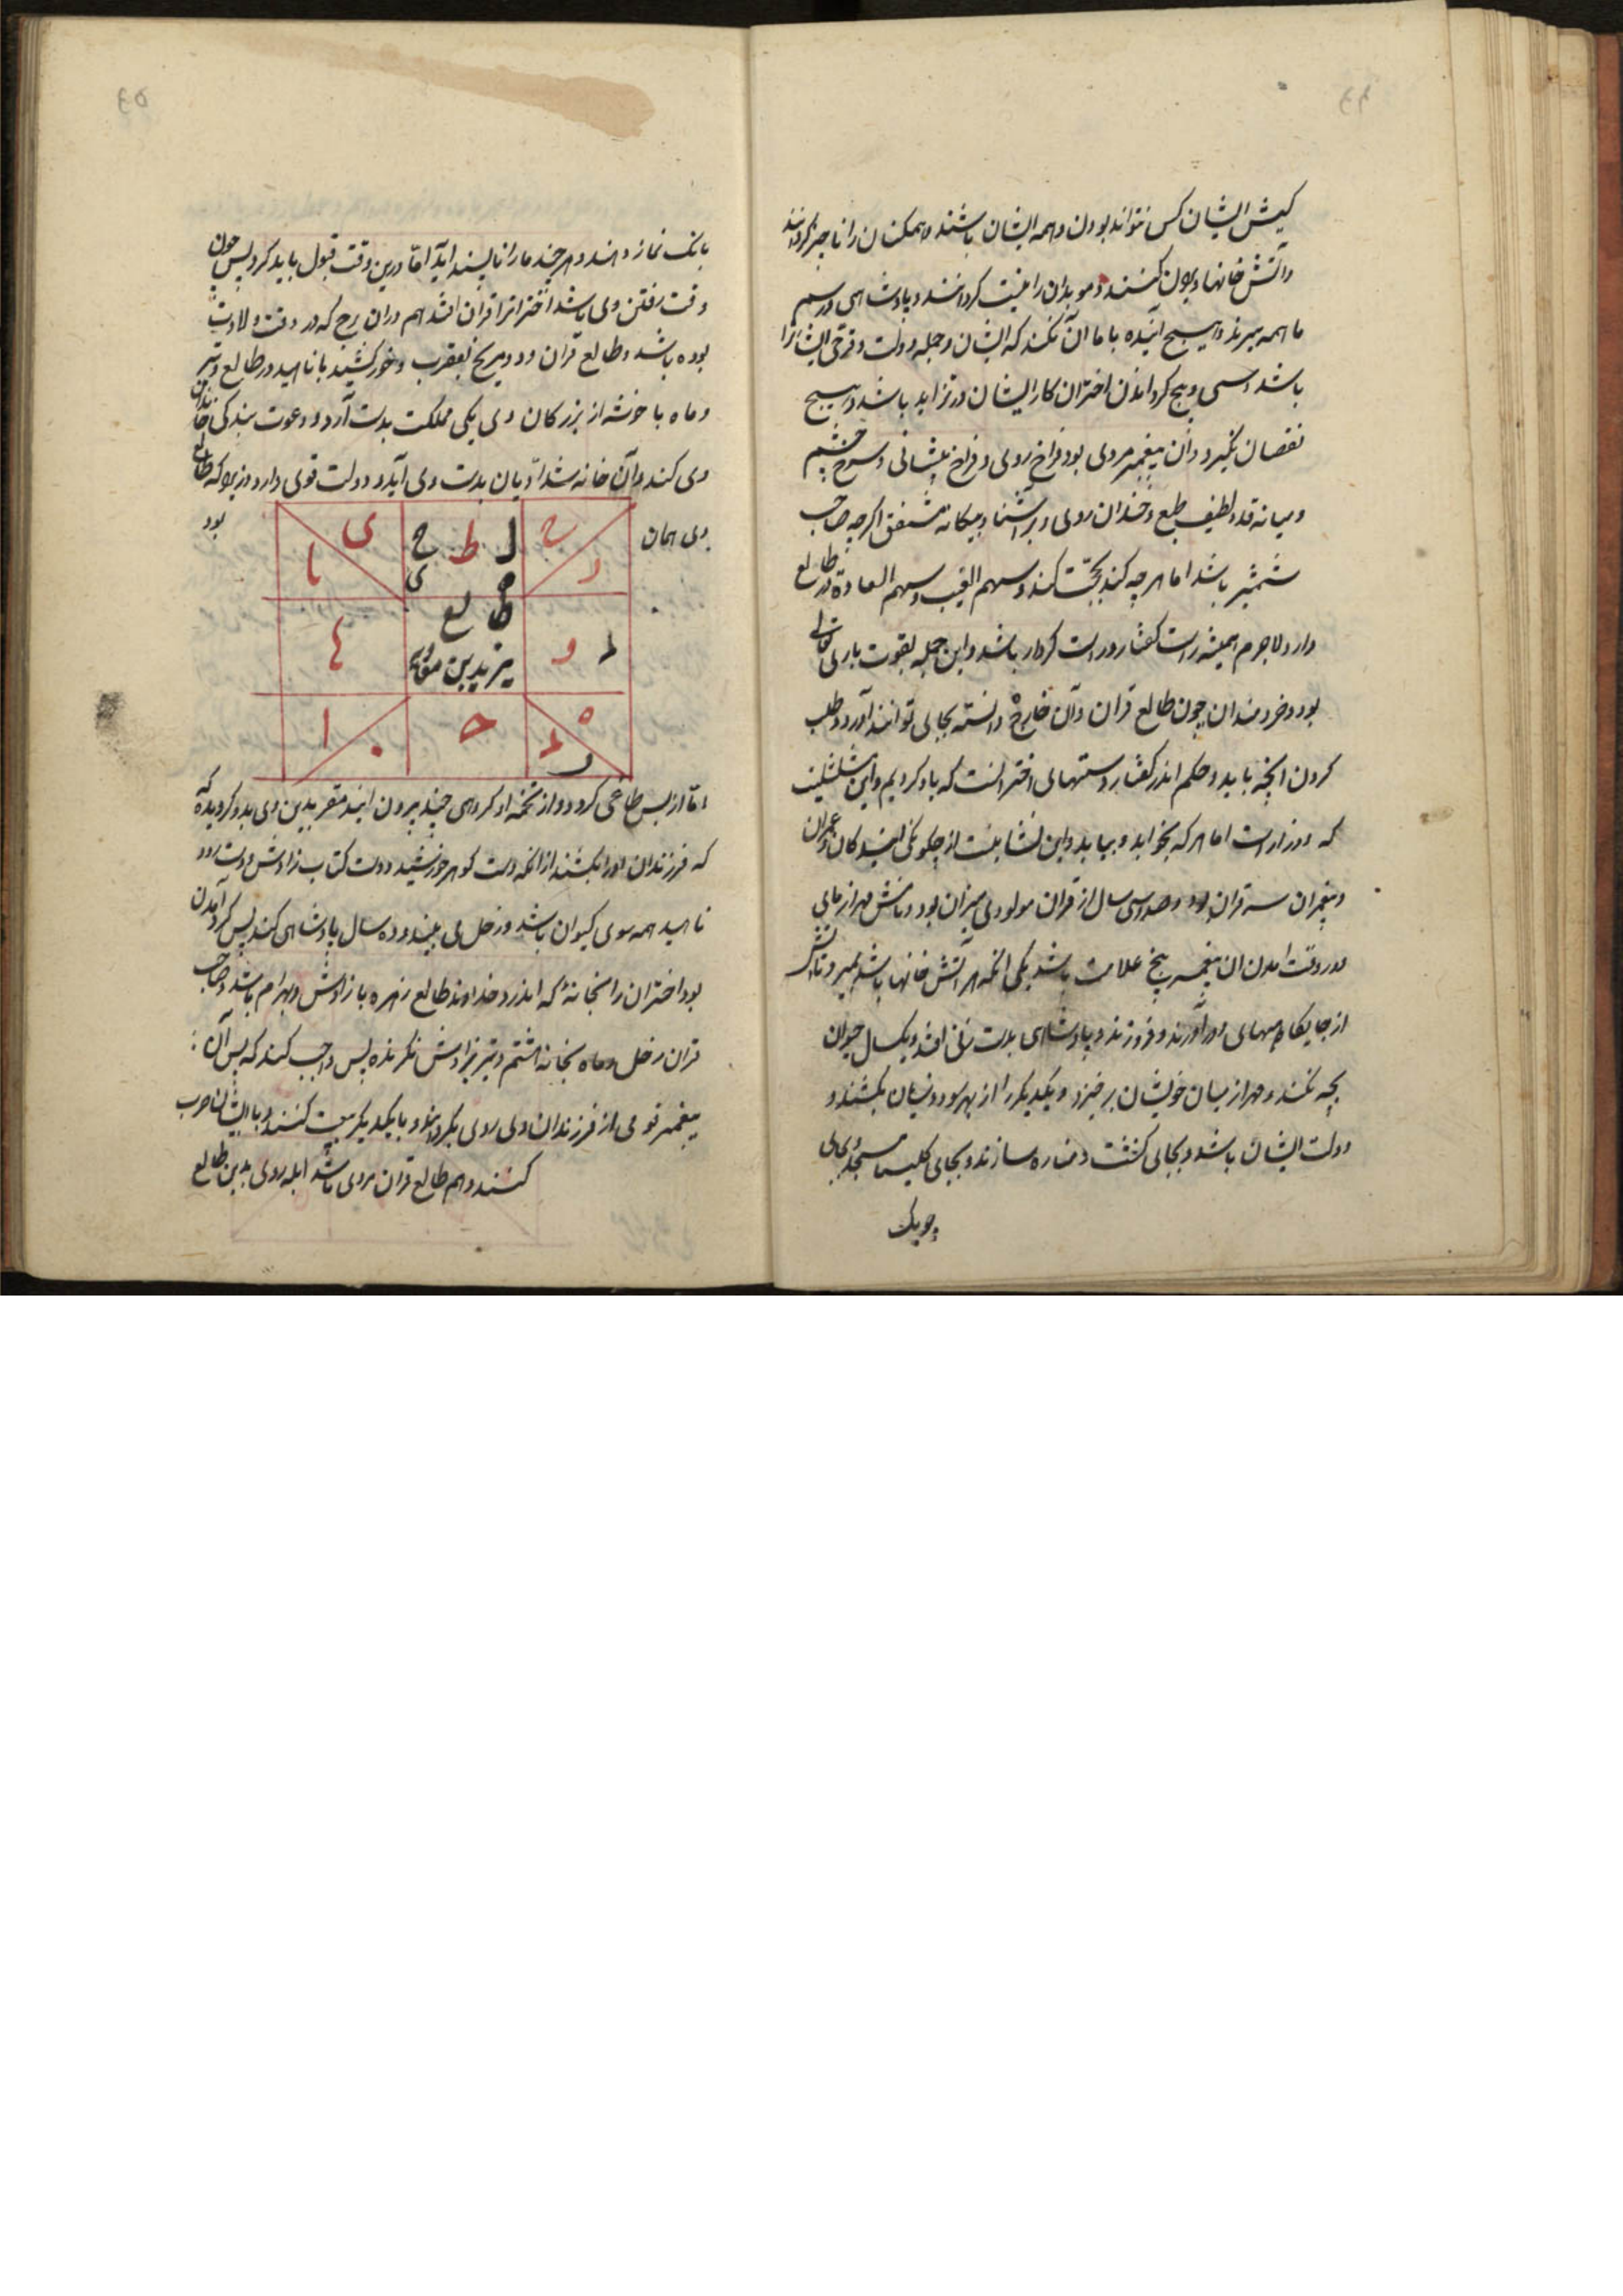 کیش ایشان کس نتواند بودن و همه ایشان باشند و همکنان را ناچیز کردانند
و آتش خانها ویران کنند و موبدان را نیست کردانند و پادشاهی و رسم
ما همه ببرند و هیچ آینده با ما آن نکند که ایشان و جمله دولت و ترقی ایشانرا
باشد و سی و پنج کرداندن اختران کار ایشان در تزاید باشد و هیچ
نقصان نکیرد و آن پیغمبر مردی بود فراخ روی و فراخ پیشانی و سرخ چشم
و میانه قد و لطیف طبع و خندان روی و بر آشنا و بیکانه مشفق اکرچه صاحب
شمشیر باشد اما هر چه کند بحجّت کند و سهم الغیب و سهم السعادة در طالع
دارد لاجرم همیشه راست کفتار و راست کردار باشد و این جمله بقوت باری تعالی
بود و خردمندان چون طالع قران و آن خارج دانسته بجای توانند آورد و طلب
کردن آنچه باید و حکم اندر کفتار و ستهای اختر آنست که یاد کردیم و این
که اما هر که بخواند و بیابد و این نشانیست از چکونکی
و پیغمبران سه قران بود و صد و سی سال از قران مولود وی میزان بود و نامش مهرازمای
در وقت آمدن آن پیغمبر پنج علامت باشد یکی آنکه هر آتش خانها باشد بمیرد و تا آتش
از جایکاههای دور آورند و فروزند و پادشاهی بدست زنی افتد و یک سال حیوان
بچه نکند و مهر از میان خویشان برخیزد و یکدیکر را از بهر سود و زیان بکشند و
دولت ایشان باشد و بجای کنشت و مناره سازند و بجای کلیسا مسجد و بجای
چوبک
بانک نماز دهند و هر چند ما را ناپسند آید اما درین وقت قبول باید کرد پس چون
وقت رفتن وی باشد اخترانرا قران افتد هم در آن برج که در وقت ولادت
بوده باشد و طالع قران و مریخ بعقرب و خورشید با ناهید در طالع و تیر
و ماه با خوشه از بزرکان وی یکی مملکت بدست آرد و دعوت بندکی خاندان
وی کند و آن خانه شد ادیان بدست وی آید و دولت قوی دارد و زیرا که طالع
وی همان بود
ی ا
ل ط ح ی
ح ر
طالع
یزید بن معویه
٤
و
ا
ح
ه
اما از پس طاغی کردد و از تخمه او کروهی چند بیرون آیند مقر بدین وی بدو کرویده که
که فرزندان او را بکشند از آنکه دست کوهر خورشید دوست کتاب زاوش
ناهید همه سوی کیوان باشد و زحل می بیند و ده سال پادشاهی کند پس کرد آمدن
بود اختران را بخانه که اندرو خداوند طالع زهره با زاوش و بهرام باشد و صاحب
قران زحل و ماه بخانه هشتم و تیر بزاوش نکرنده پس واجب کند که پس آن
پیغمبر قومی از فرزندان وی روی بکردانند و با یکدیکر بیعت کنند و با ایشان حرب
کنند و هم طالع قران مردی باشد ابله روی بدین طالع